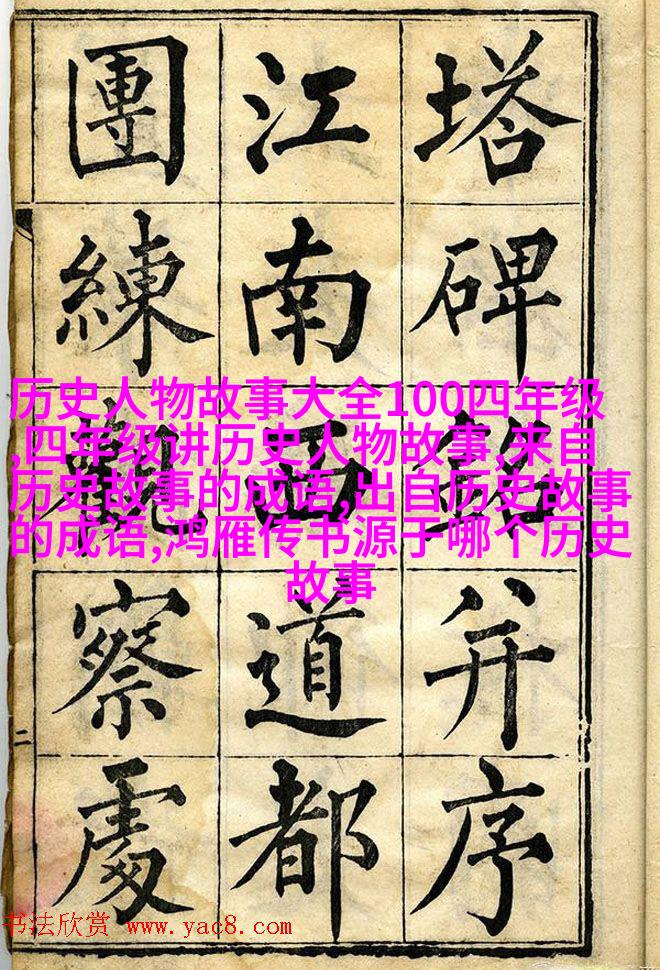 塔碑銘并序
江南西道都
團練觀察處
二
历史人物故事大全100四年级
,四年级讲历史人物故事,来自
历史故事的成语,出自历史故事
的成语,鸿雁传书源于哪个历史
故事
书法欣赏 www.yac8.com